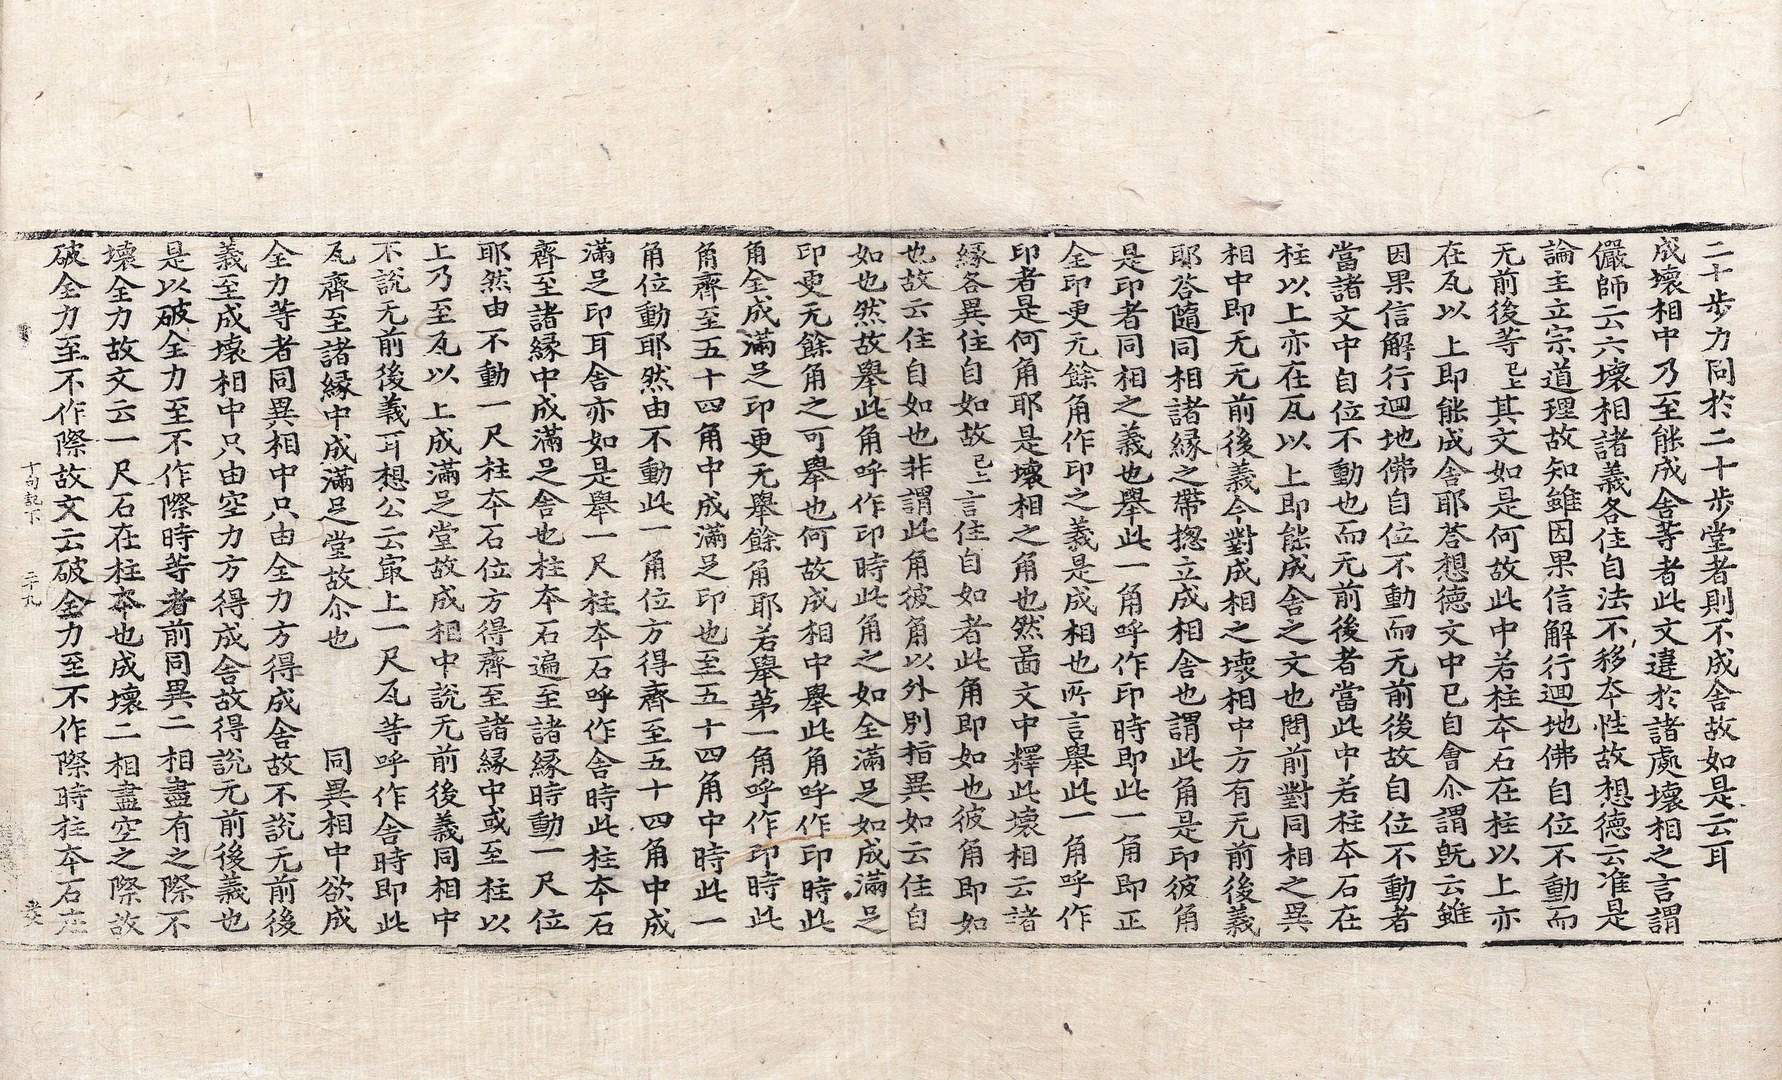 二十步力同於二十步堂者則不成舍故如是云耳
成壞相中乃至能成舍等者此文違於諸處壞相之言謂
儼師云六壞相諸義各住自法不移夲性故想德云准是
論主立宗道理故知雖因果信解行迴地佛自位不動而
无前後等已上其文如是何故此中若柱夲石在柱以上亦
在瓦以上即能成舍耶荅想德文中已自會尒謂旣云雖
因果信解行迴地佛自位不動而无前後故自位不動者
當諸文中自位不動也而无前後者當此中若柱夲石在
柱以上亦在瓦以上即能成舍之文也問前對同相之異
相中即无无前後義今對成相之壞相中方有无前後義
耶荅隨同相諸緣之帶揔立成相舍也謂此角是印彼角
是印者同相之義也舉此一角呼作印時即此一角即正
全印更元餘角作印之義是成相也所言舉此一角呼作
印者是何角耶是壞相之角也然啚文中釋此壞相云諸
緣各異住自如故已上言住自如者此角即如也彼角即如
也故云住自如也非謂此角彼角以外別指異如云住自
如也然故舉此角呼作印時此角之如全滿足如成滿足
印更无餘角之可舉也何故成相中舉此角呼作印時此
角全成滿足印更无舉餘角耶若舉苐一角呼作印時此
角齊至五十四角中成滿足印也至五十四角中時此一
角位動耶然由不動此一角位方得齊至五十四角中成
滿足印耳舍亦如是舉一尺柱夲石呼作舍時此柱夲石
齊至諸緣中成滿足舍也柱夲石遍至諸緣時動一尺位
耶然由不動一尺柱夲石位方得齊至諸緣中或至柱以
上乃至瓦以上成滿足堂故成相中說无前後義同相中
不說无前後義耳想公云㝡上一尺瓦等呼作舍時即此
瓦齊至諸緣中成滿足堂故尒也　　同異相中欲成
全力等者同異相中只由全力方得成舍故不說无前後
義至成壞相中只由空力方得成舍故得說元前後義也
是以破全力至不作際時等者前同異二相盡有之際不
壞全力故文云一尺石在柱夲也成壞二相盡空之際故
破全力至不作際故文云破全力至不作際時柱夲石在
十句記下　二十九